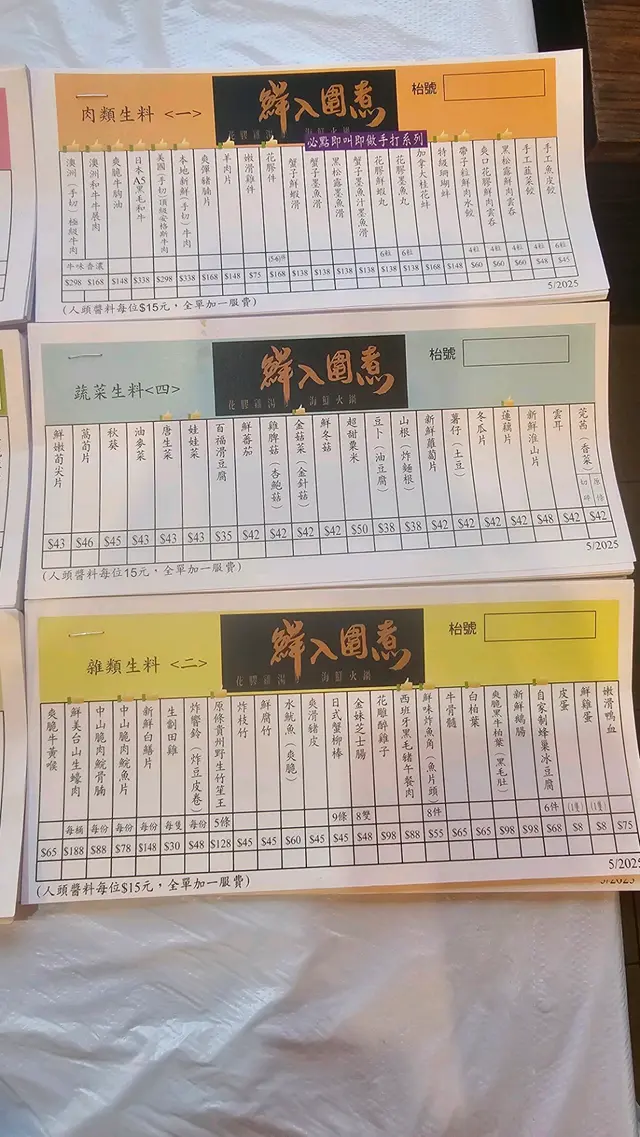 肉類生料 <一>
鮮入圍煮
枱號
必點即叫即做手打系列
澳洲(手切)極級牛肉 $298
澳洲和牛牛展肉 $168
牛味香濃
爽脆牛胸油 $148
日本A5黑毛和牛 $338
美國(手切)頂級安格斯牛肉 $298
本地新鮮(手切)牛肉 $338
爽彈豬腩片 $168
羊肉片 $148
嫩滑雞件 $75
花膠件 (5-6)件 $168
蟹子鮮蝦滑 $138
蟹子墨魚滑 $138
黑松露墨魚滑 $138
蟹子墨魚汁墨魚滑 $138
花膠鮮蝦丸 6粒 $138
花膠墨魚丸 6粒 $138
加拿大桂花蚌 $168
特級珊瑚蚌 $148
帶子粒鮮肉水餃 4粒 $60
爽口花膠鮮肉雲吞 4粒 $60
黑松露鮮肉雲吞 4粒 $60
手工韮菜餃 4粒 $48
手工魚皮餃 6粒 $45
5/2025
(人頭醬料每位$15元，全單加一服費)
蔬菜生料<四>
鮮入圍煮
花膠雞湯 海鮮火鍋
枱號
鮮嫩萄尖片 $43
萵萄片 $46
秋葵 $45
油麥菜 $43
唐生菜 $43
娃娃菜 $43
百福滑豆腐 $35
鮮蕃茄 $42
雞脾菇(杏鮑菇) $42
金菇菜(金針菇) $42
鮮冬菇 $42
超甜粟米 $50
豆卜(油豆腐) $38
山根(炸麵根) $38
新鮮蘿蔔片 $42
薯仔(土豆) $42
冬瓜片 $42
蓮藕片 $42
新鮮淮山片 $48
雲耳 $42
芫茜(香菜) 切碎 原條 $42
5/2025
(人頭醬料每位15元，全單加一服費)
雜類生料 <二>
鮮入圍煮
花膠雞湯 海鮮火鍋
枱號
爽脆牛黃喉 $65
鮮美台山生蠔肉 每桶 $188
中山脆肉鯇骨腩 每份 $88
中山脆肉鯇魚片 每份 $78
新鮮白鱔片 每份 $148
生劏田雞 每隻 $30
炸響鈴(炸豆皮卷) 每份 $48
原條貴州野生竹笙王 5條 $128
炸枝竹 $45
鮮腐竹 $45
水魷魚(爽脆) $60
爽滑豬皮 $45
日式蟹柳棒 9條 $45
金妹芝士腸 8雙 $48
花雕醉雞子 $98
西班牙黑毛豬午餐肉 $88
鮮味炸魚角(魚片頭) 8件 $55
牛骨髓 $65
白柏葉 $65
爽脆黑牛柏葉(黑毛肚) $98
新鮮鵝腸 $98
自家制蜂巢冰豆腐 6件 $68
皮蛋 (1隻) $8
鮮雞蛋 (1隻) $8
嫩滑鴨血 $75
5/2025
(人頭醬料每位$15元，全單加一服費)